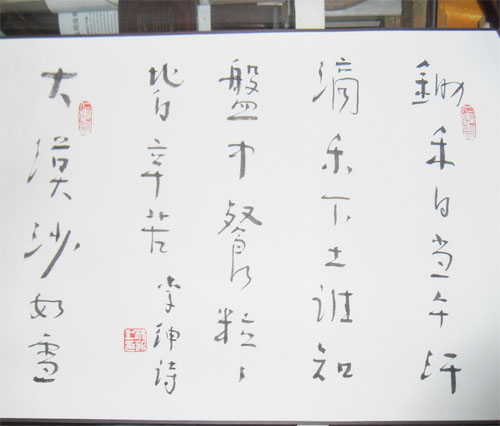 鋤禾日当午汗
滴禾下土谁知
盤中餐粒々
皆辛苦 李紳诗
大漠沙如雪